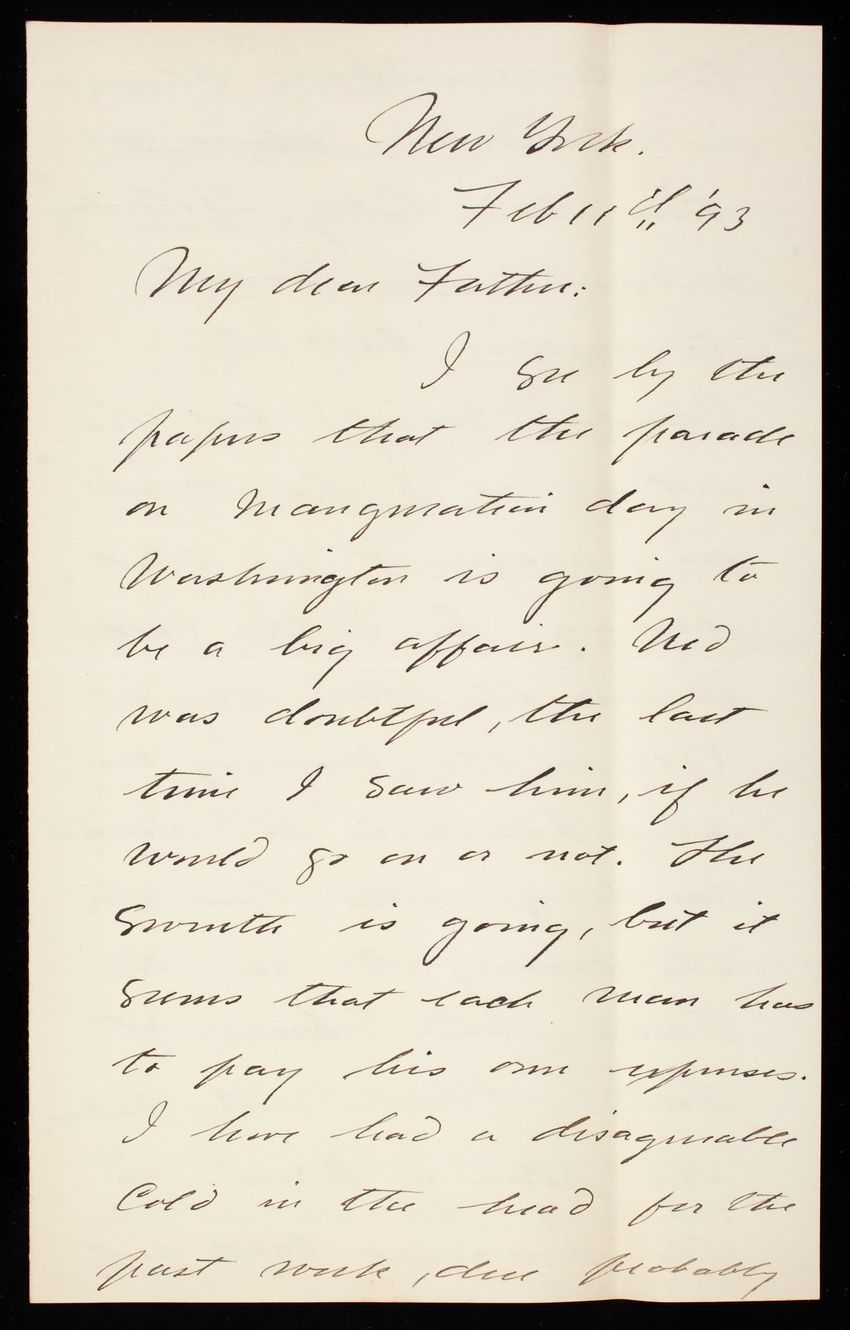 New York.
Feb 11th '93
My dear Father:
I see by the
papers that the parade
on Inauguration day in
Washington is going to
be a big affair. Ned
was doubtful, the last
time I saw him, if he
would go on or not. The
Seventh is going, but it
seems that each man has
to pay his own expenses.
I have had a disagreeable
Cold in the head for the
past week, due probably